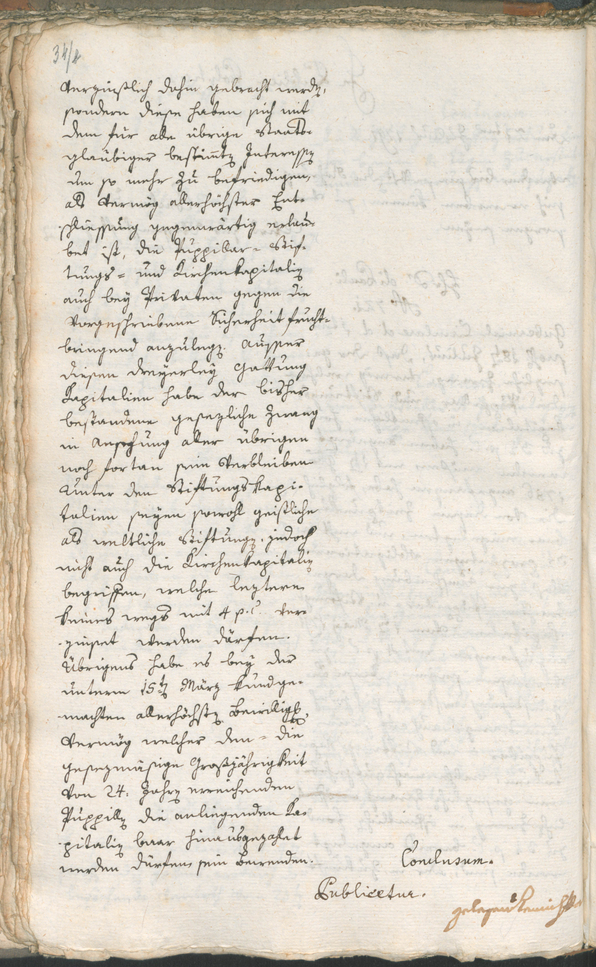 34/4
Verzinßlich dahin gebracht werdn,
sondern diese haben sich mit
dem für alle übrige Staats-
glaübiger bestimtn Interessen
um so mehr zu befriedigen,
als Vermög allerhöchster Ent-
schliessung gegenwärtig erlau-
bet ist, die Puppillar- Stif-
tungs- und Kirchenkapitalien
auch bey Privaten gegen die
Vorgeschriebene Sicherheit frucht-
bringend anzulegn. Ausser
diesen dreyerley Gattung
Kapitalien habe der bisher
bestandene gesezliche Zwang
in Ansehung aller übrigen
noch fortan sein Verbleiben
Unter den Stiftungskapi-
talien seyen sowohl geistliche
als weltliche Stiftungn, jedoch
nicht auch die Kirchenkapitalien
begriffen, welche leztere
keines wegs mit 4 p.C. ver-
zinset werden därfen.
Übrigens habe es bey der
unterm 15tn März kundge-
machten allerhöchstn Bewilligg,
Vermög welcher den - die
gesezmäsige Großjährigkeit
von 24. Jahrn erreichenden
Puppilln die anliegenden Ka-
pitalien baar hinausgezahlet
werden dürfen, sein Bewenden.
Conclusum.
Publicetur.
gelesen